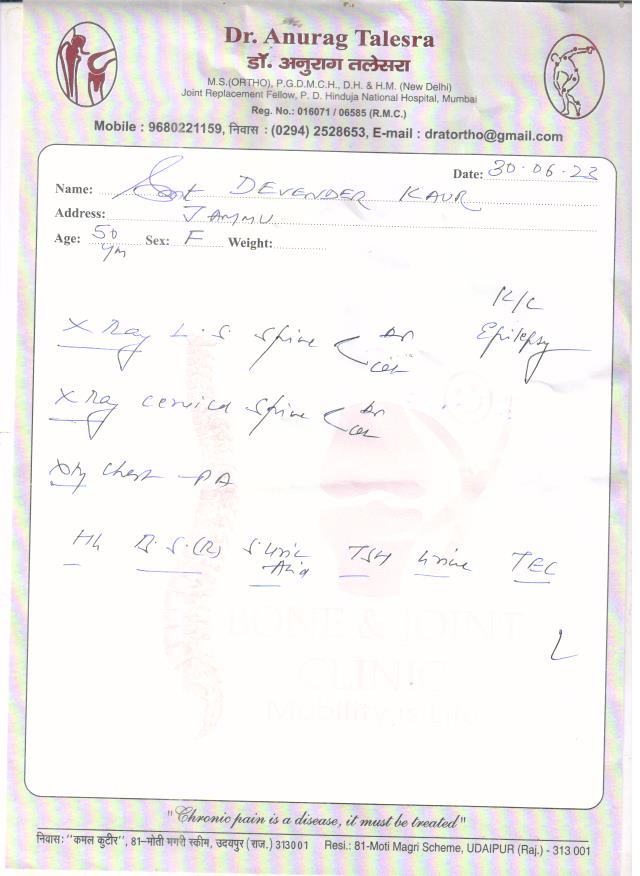 Dr. Anurag Talesra
डॉ. अनुराग तलेसरा
M.S.(ORTHO), P.G.D.M.C.H., D.H. & H.M. (New Delhi)
Joint Replacement Fellow, P. D. Hinduja National Hospital, Mumbai
Reg. No.: 016071 / 06585 (R.M.C.)
Mobile : 9680221159, निवास : (0294) 2528653, E-mail : dratortho@gmail.com
Date: 30.06.23
Name: DEVENDER KAUR
Address: JAMMU
Age: 50 Sex: F Weight:
K/C
X Ray L.S Spine Epilepsy
X Ray cervical Spine
Chest PA
Hb B.S.(R) S.Uric Acid TSH Urine TEC
BONE & JOINT
CLINIC
Mobility is Life
"Chronic pain is a disease, it must be treated"
निवास: "कमल कुटीर", 81-मोती मगरी स्कीम, उदयपुर (राज.) 313001 Resi.: 81-Moti Magri Scheme, UDAIPUR (Raj.) - 313 001